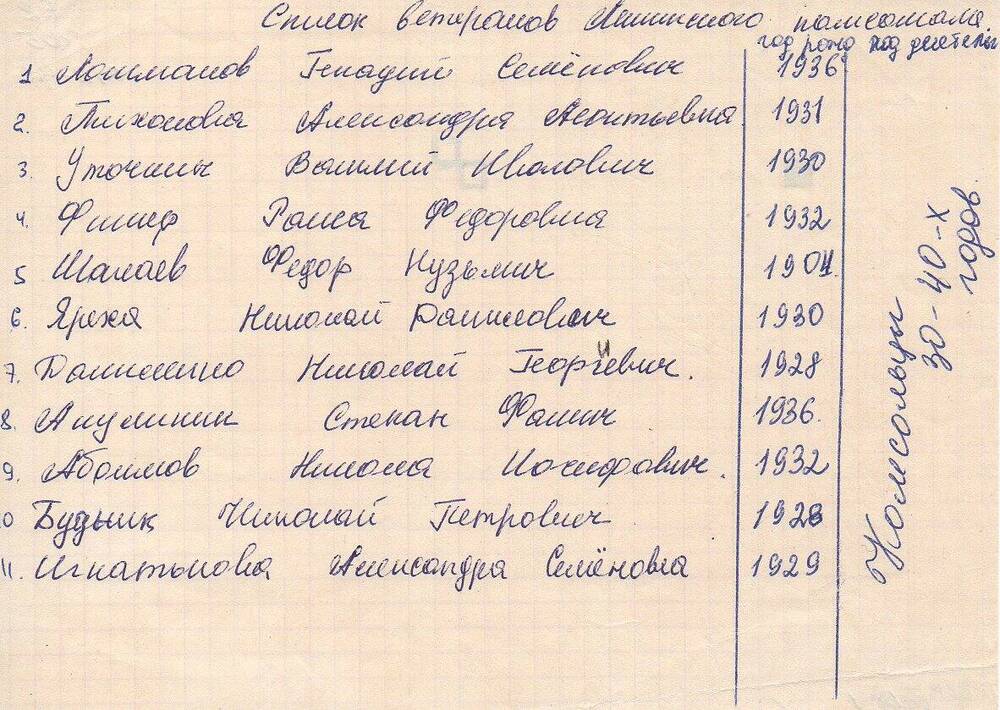 Список ветеранов Ленинского комсомола
год рожд год деятель
1 Лоцманов Генадий Семёнович 1936
2. Тихоновна Александра Леонтьевна 1931
3. Уточкин Василий Иванович 1930
4. Раиса Федоровна 1932
5 Шалаев Федор Кузьмич 1904.
6. Яреха Николай Данилович 1930
7. Даниленко Николай Георгиевич. 1928
8. Акулинин Степан Фомич 1936.
9. Абоимов Никола Иосифович. 1932
10 Будник Николай Петрович 1928
11. Игнатьновва Александра Семёновна 1929
Комсомольцы
30-40-х
годов.